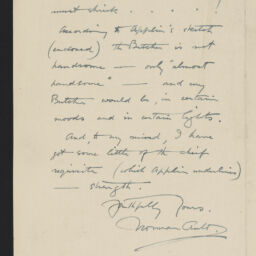 must shriek . . . . !
According to Applin's sketch
(enclosed) the Butcher is not
handsome — only "almost
handsome" — and my
Butcher would be, in certain
moods and in certain lights.
And, to my mind, I have
got some little of the chief
requisite (which Applin underlines)
— strength.
Faithfully Yours.
Norman Ault.